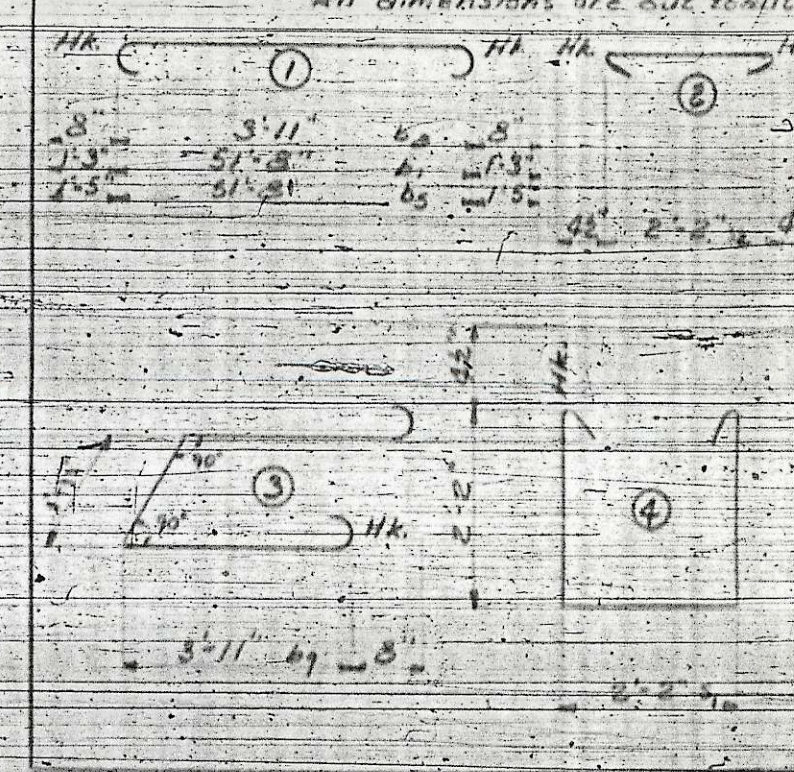 All dimensions are out to out
Hk. ① Hk. Hk. ②
8" 3'-11" 8"
1'-3" 51'-8" b₁ 1'-3"
1'-5" 51'-8" b₅ 1'-5"
4½" 2'-2"
4½"
Hk.
90°
③ 2'-2" ④
90° Hk.
3'-11" b₉ 8"
2'-2" s₁